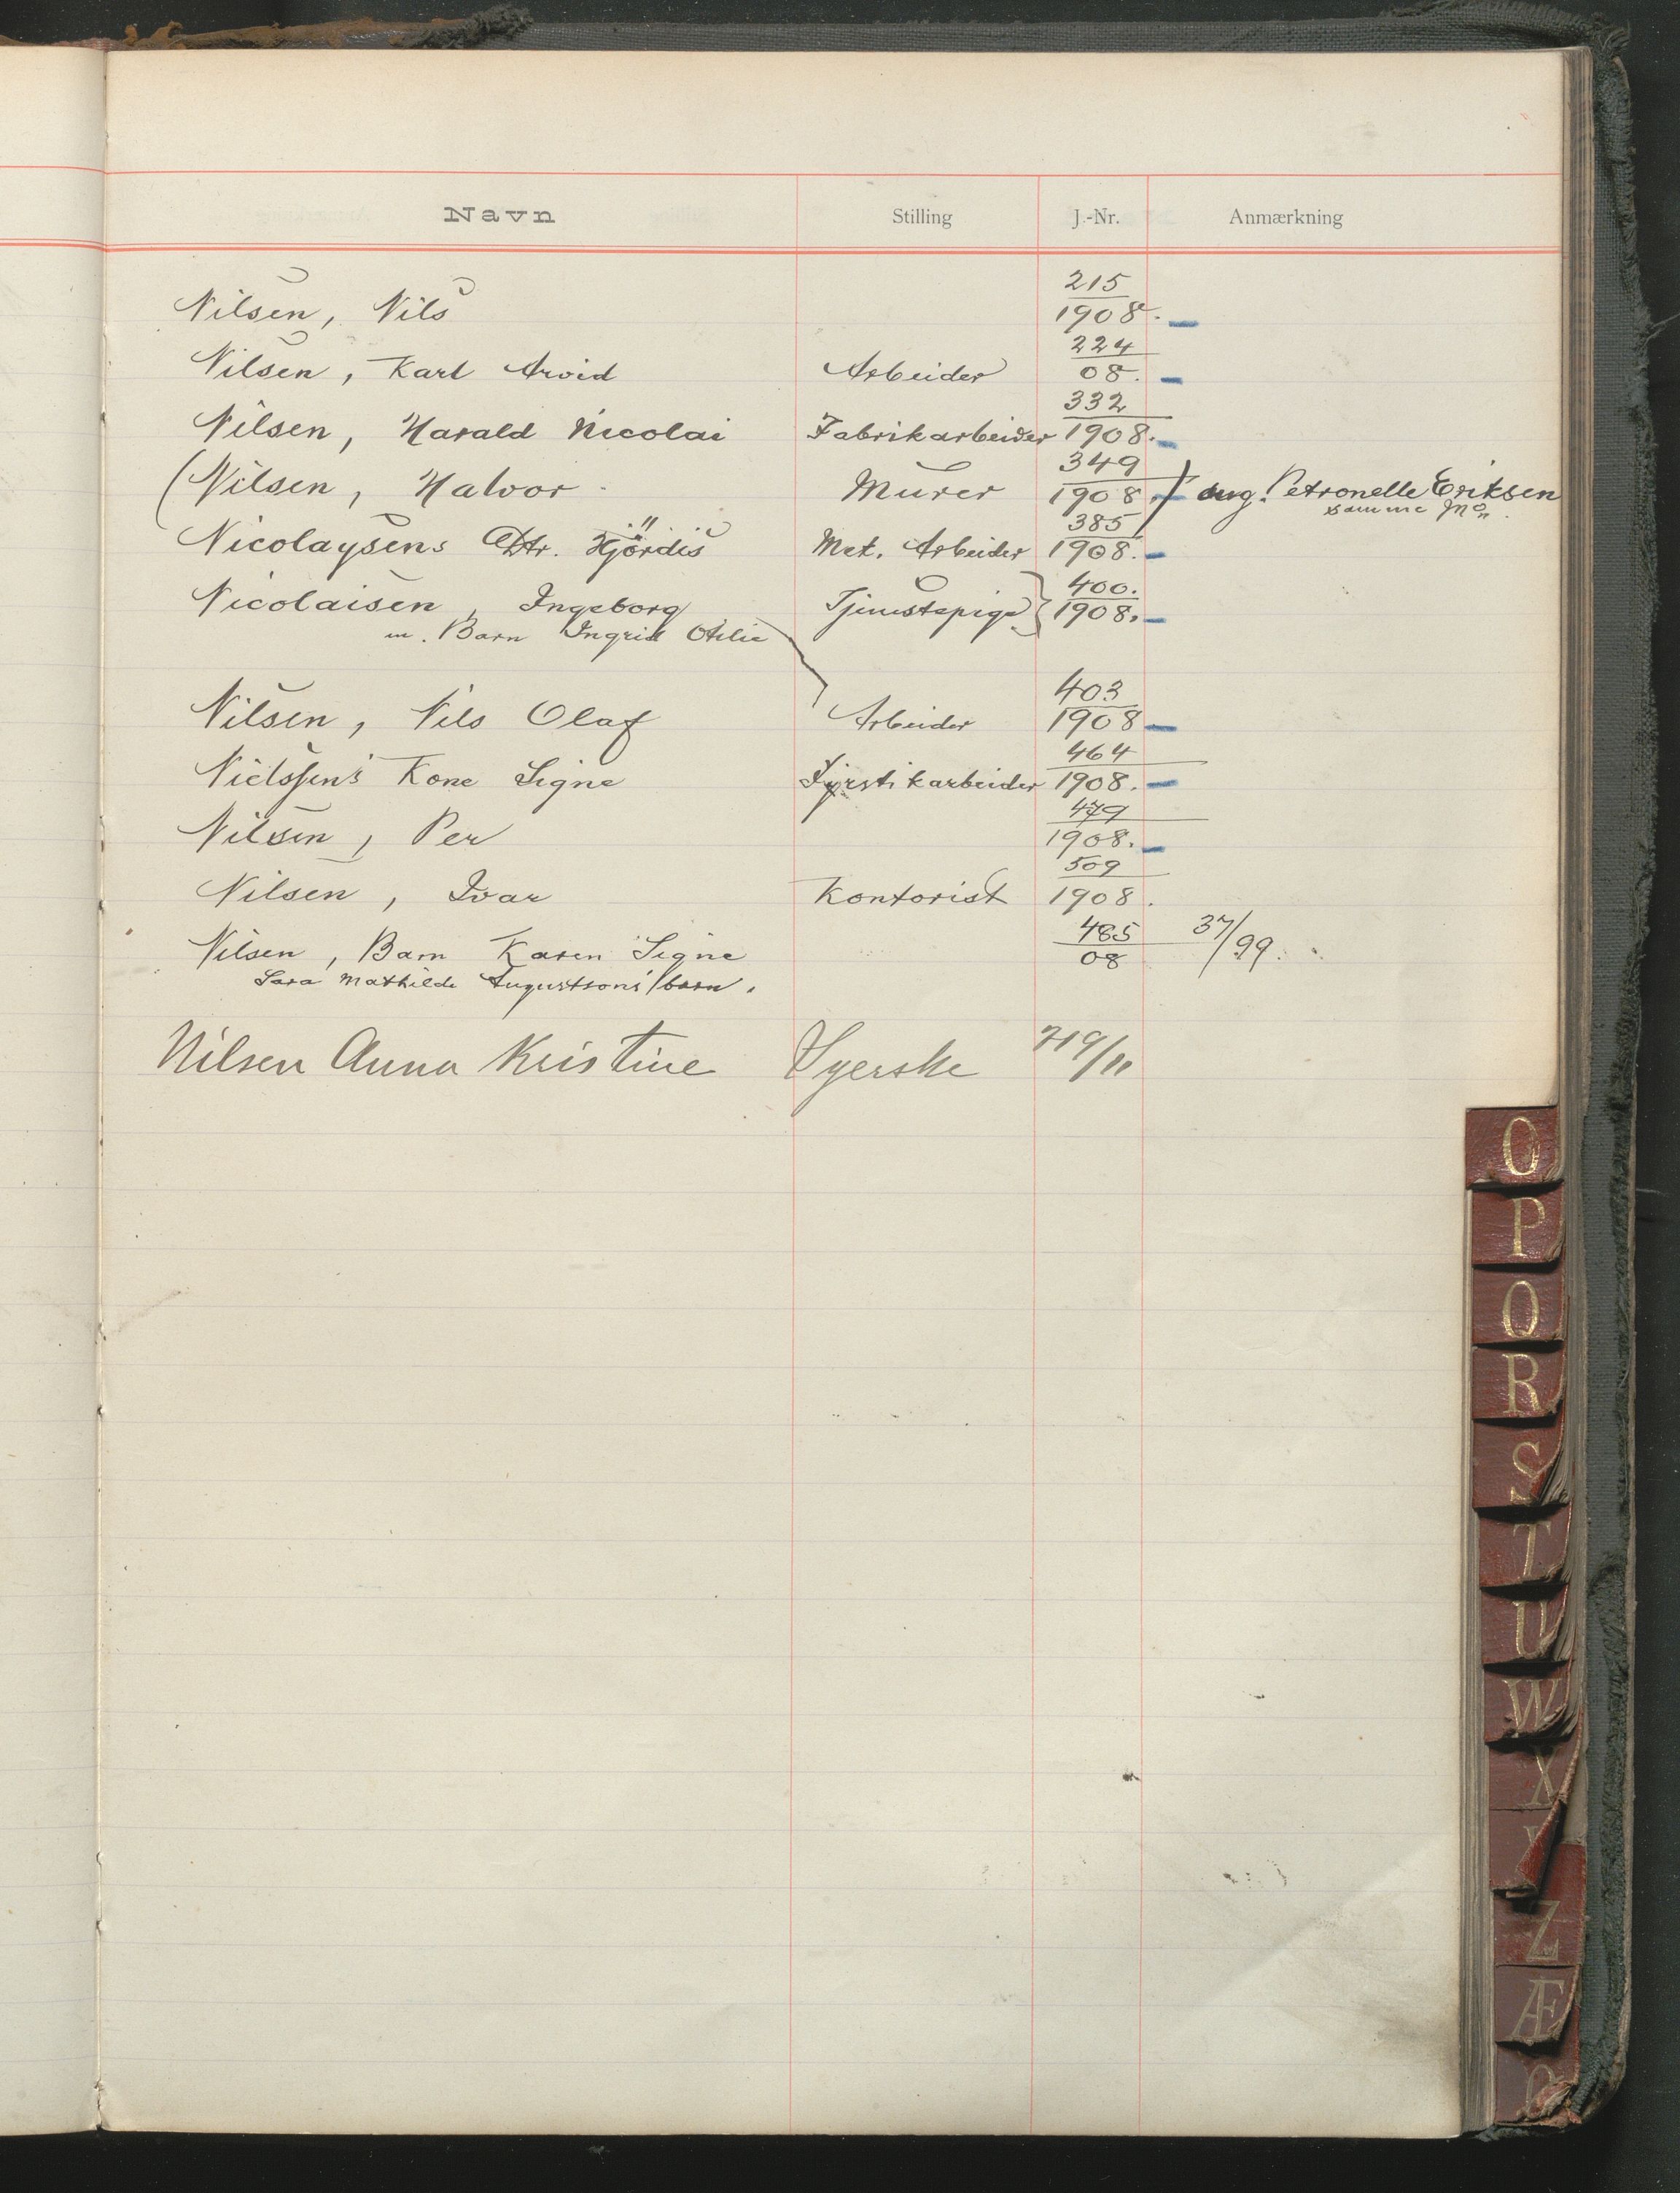 Navn Stilling J.-Nr. Anmærkning
Nilsen, Nils 215/1908.
Nilsen, Karl Arvid Arbeider 224/08.
Nilsen, Harald Nicolai Fabrikarbeider 332/1908.
(Nilsen, Halvor Murer 349/1908.) ang. Petronelle Eriksen
samme No
Nicolaysens Dtr. Hjördis Met. Arbeider 385/1908.
Nicolaisen, Ingeborg Tjenestepige } 400./1908.
m. Barn Ingrid Otilie
Nilsen, Nils Olaf Arbeider 403/1908
Nielssen's Kone Signe Fyrstikarbeider 464/1908.
Nilsen, Per 479/1908.
Nilsen, Ivar Kontorist 509/1908.
Nilsen, Barn Karen Signe 485/08 37/99.
Sara Mathilde Augustsons barn.
Nilsen Anna Kristine Syerske 719/11
O
P
Q
R
S
T
U
W
X
Z
Æ